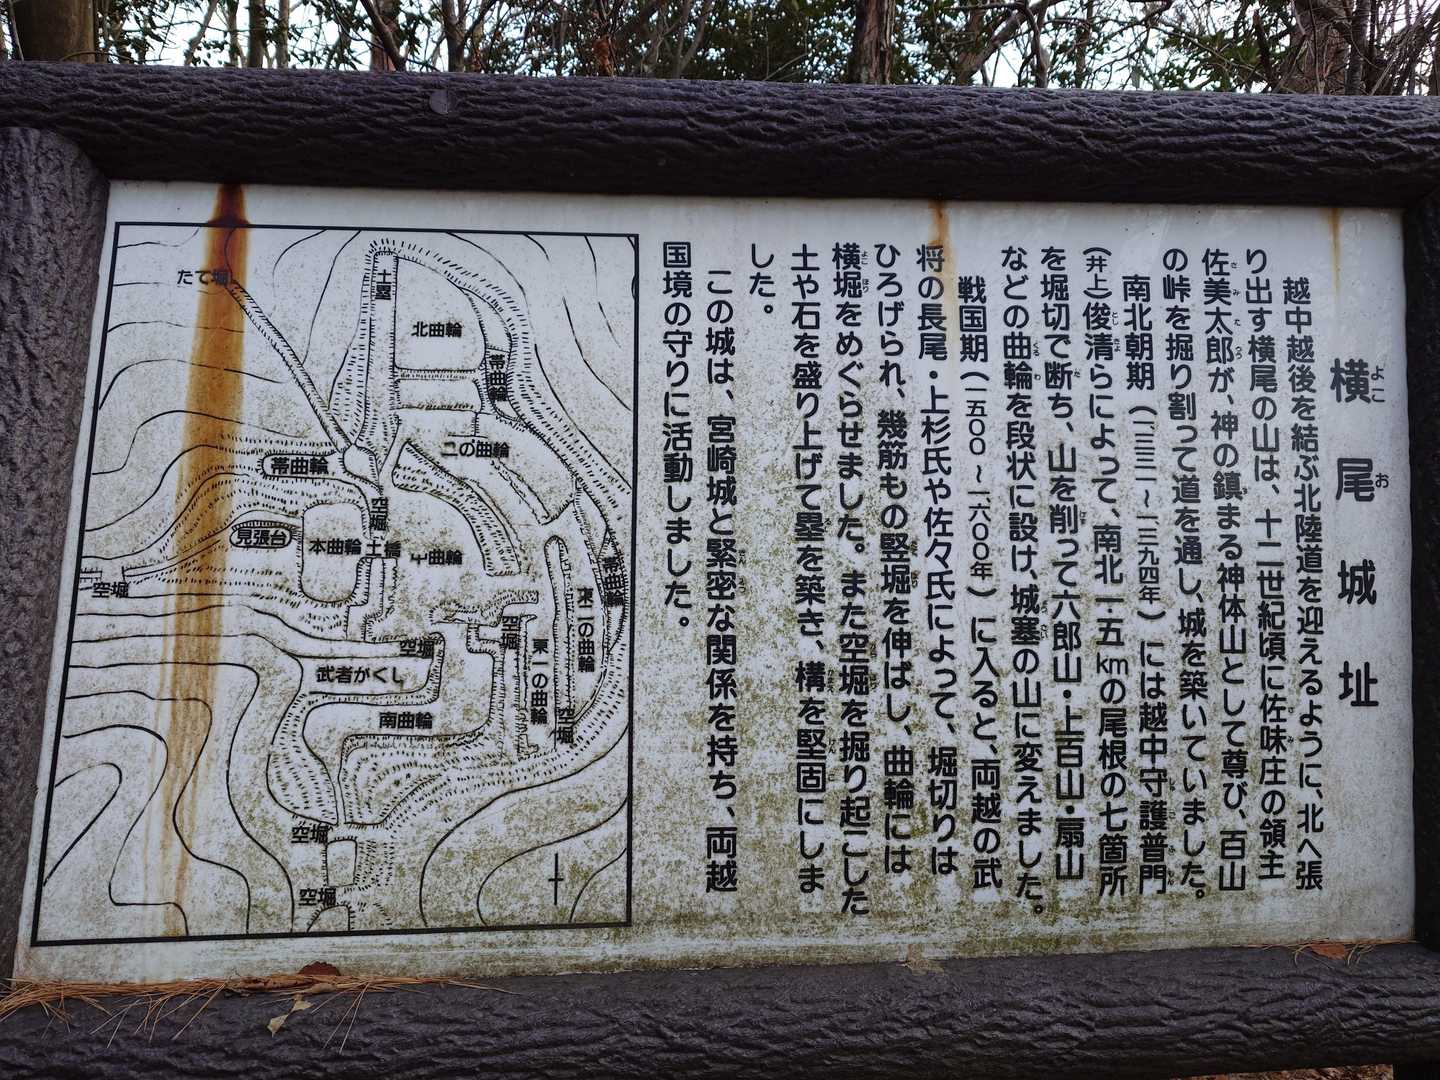 横尾城址
よこ お
越中越後を結ぶ北陸道を迎えるように、北へ張
り出す横尾の山は、十二世紀頃に佐味庄の領主
佐美太郎が、神の鎮まる神体山として尊び、百山
の峠を掘り割って道を通し、城を築いていました。
南北朝期(一三三一〜一三九四年)には越中守護普門
(井上)俊清らによって、南北一・五kmの尾根の七箇所
を堀切で断ち、山を削って六郎山・上百山・扇山
などの曲輪を段状に設け、城塞の山に変えました。
戦国期(一五〇〇〜一六〇〇年)に入ると、両越の武
将の長尾・上杉氏や佐々氏によって、堀切りは
ひろげられ、幾筋もの竪堀を伸ばし、曲輪には
横堀をめぐらせました。また空堀を掘り起こした
土や石を盛り上げて塁を築き、構を堅固にしま
した。
この城は、宮崎城と緊密な関係を持ち、両越
国境の守りに活動しました。
たて堀
土塁
北曲輪
帯曲輪
二の曲輪
帯曲輪
空堀
見張台
本曲輪
土橋
帯曲輪
空堀
東二の曲輪
空堀
東一の曲輪
空堀
武者がくし
南曲輪
空堀
空堀
空堀